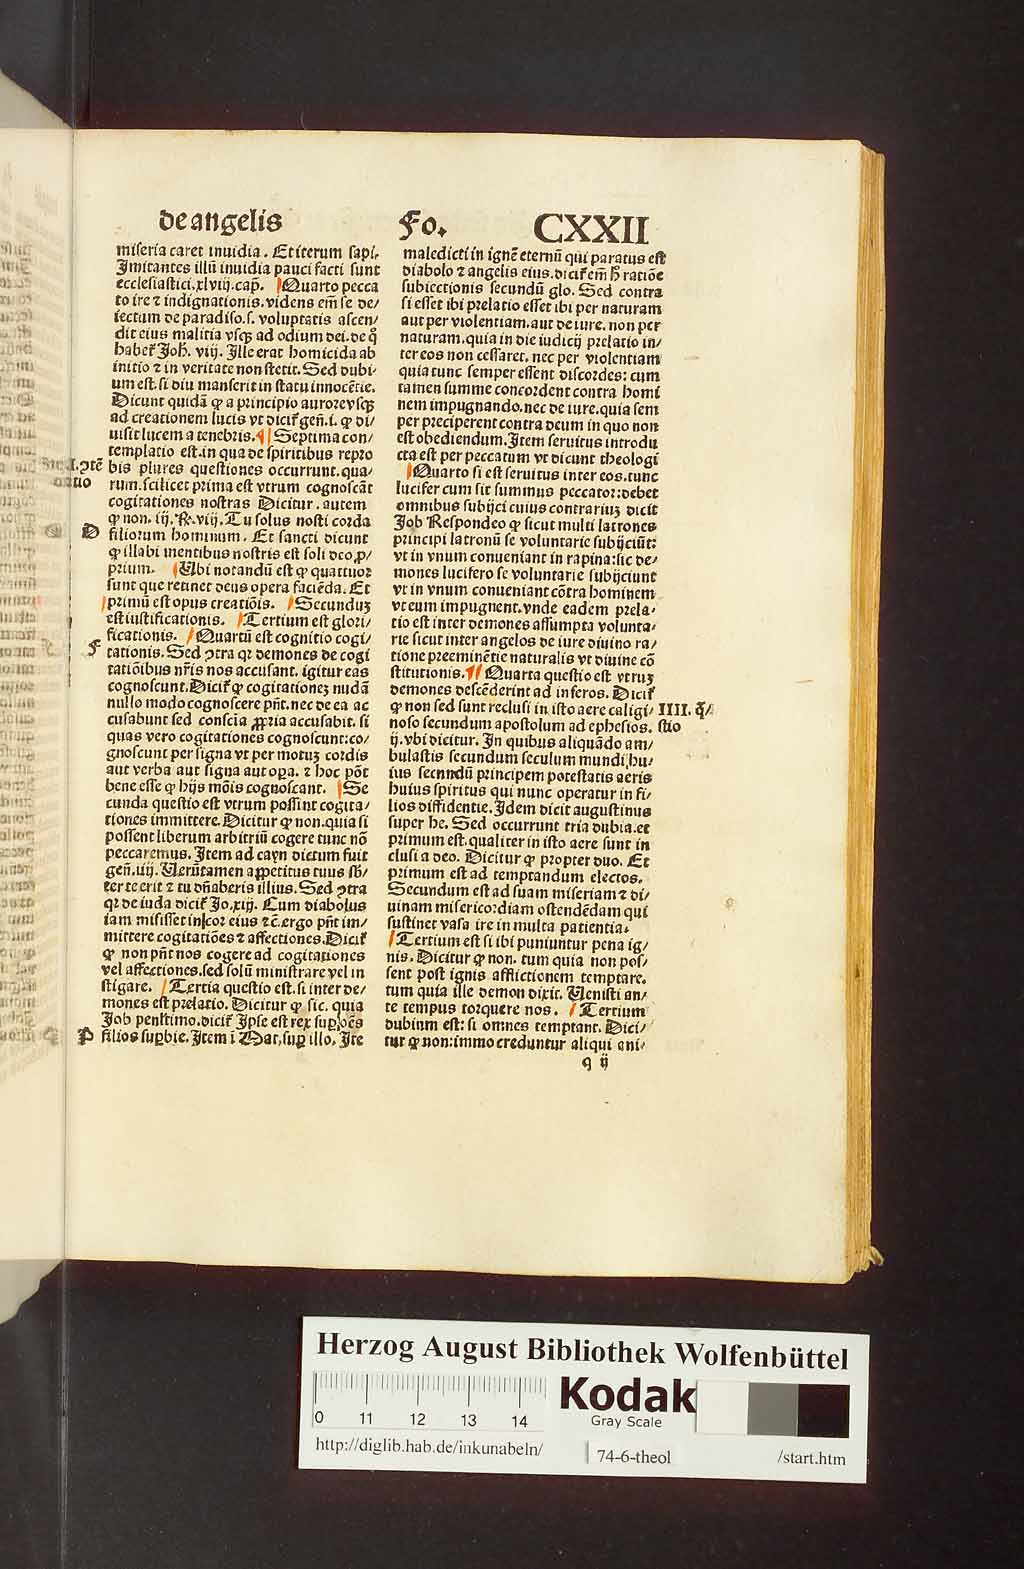 de angelis Fo. CXXII
miseria caret inuidia. Et iterum sapi.
Imitantes illū inuidia pauci facti sunt
ecclesiastici.xlviij.cap̄. Quarto pecca
to ire ⁊ indignationis.videns em̄ se de/
iectum de paradiso.s. voluptatis ascen/
dit eius malitia vsq̄ ad odium dei. de q̊
haber̄ Joh. viij. Ille erat homicida ab
initio ⁊ in veritate non stetit. Sed dubi/
um est.si diu manserit in statu innocētie.
Dicunt quidā ꝙ a principio aurore vsq̄
ad creationem lucis vt dicit̄ gen̄.i. ꝙ di/
uisit lucem a tenebris. Septima con/
templatio est.in qua de spiritibus repro
bis plures questiones occurrunt. qua/
rum.scilicet prima est vtrum cognoscāt
cogitationes nostras Dicitur. autem
ꝙ non. iij. R̄. viij. Tu solus nosti corda
D
filiorum hominum. Et sancti dicunt
ꝙ illabi mentibus nostris est soli deo ꝓ/
prium. Ubi notandū est ꝙ quattuor
sunt que retinet deus opera faciēda. Et
primū est opus creatiōis. Secunduʒ
est iustificationis. Tertium est glori/
ficationis. Quartū est cognitio cogi/
F
tationis. Sed ꝯtra qr̄ demones de cogi
tatiōibus nr̄is nos accusant. igitur eas
cognoscunt. Dicit̄ ꝙ cogitationeʒ nudā
nullo modo cognoscere pn̄t. nec de ea ac
cusabunt sed conscīa ꝓpria accusabit. si
quas vero cogitationes cognoscunt: co/
gnoscunt per signa vt per motuʒ cordis
aut verba aut signa aut opa. ⁊ hoc pōt
bene esse ꝙ hijs mōis cognoscant. Se
cunda questio est vtrum possint cogita/
tiones immittere. Dicitur ꝙ non. quia si
possent liberum arbitriū cogere tunc nō
peccaremus. Item ad cayn dictum fuit
gen̄.iiij. Uerūtamen appetitus tuus sb̄/
ter te erit ⁊ tu dn̄aberis illius. Sed ꝯtra
qr̄ de iuda dicit̄ Jo.xiij. Cum diabolus
iam misisset in cor eius ⁊c̄. ergo pn̄t im/
mittere cogitatiōes ⁊ affectiones. Dicit̄
ꝙ non pn̄t nos cogere ad cogitationes
vel affectiones. sed solū ministrare vel in
stigare. Tertia questio est. si inter de/
mones est prelatio. Dicitur ꝙ sic. quia
Job penltimo. dicit̄ Ipse est rex sup̱ oēs
P
filios sup̱bie. Item ī Mat. sup̱ illo. Ite
maledicti in ignē eternū qui paratus est
diabolo ⁊ angelis eius. dicit̄ em̄ h̄ ratiōe
subiectionis secundū glo. Sed contra
si esset ibi prelatio esset ibi per naturam
aut per violentiam. aut de iure. non per
naturam. quia in die iudicij prelatio in/
ter eos non cessaret. nec per violentiam
quia tunc semper essent discordes: cum
tamen summe concordent contra homi
nem impugnando. nec de iure. quia sem
per preciperent contra deum in quo non
est obediendum. Item seruitus introdu
cta est per peccatum vt dicunt theologi
Quarto si est seruitus inter eos. tunc
lucifer cum sit summus peccator: debet
omnibus subijci cuius contrariuʒ dicit
Job Respondeo ꝙ sicut multi latrones
principi latronū se voluntarie subijciūt:
vt in vnum conueniant in rapina: sic de/
mones lucifero se voluntarie subijciunt
vt in vnum conueniant cōtra hominem
vt eum impugnent. vnde eadem prela/
tio est inter demones assumpta volunta/
rie sicut inter angelos de iure diuino ra/
tione preeminētie naturalis vt diuine cō
stitutionis. Quarta questio est vtruʒ
demones descēderint ad inferos. Dicit̄
ꝙ non sed sunt reclusi in isto aere caligi/
IIII. q̄/
stio
noso secundum apostolum ad ephesios.
ij. vbi dicitur. In quibus aliquādo am/
bulastis secundum seculum mundi hu/
ius secundū principem potestatis aeris
huius spiritus qui nunc operatur in fi/
lios diffidentie. Idem dicit augustinus
super he. Sed occurrunt tria dubia. et
primum est. qualiter in isto aere sunt in
clusi a deo. Dicitur ꝙ propter duo. Et
primum est ad temptandum electos.
Secundum est ad suam miseriam ⁊ di/
uinam misericordiam ostendēdam qui
sustinet vasa ire in multa patientia.
Tertium est si ibi puniuntur pena ig/
nis. Dicitur ꝙ non. tum quia non pos/
sent post ignis afflictionem temptare.
tum quia ille demon dixit. Uenisti an/
te tempus torquere nos. Tertium
dubium est: si omnes temptant. Dici/
tur ꝙ non: immo creduntur aliqui ani/
q ij
Herzog August Bibliothek Wolfenbüttel
0 11 12 13 14
Kodak
Gray Scale
http://diglib.hab.de/inkunabeln/ 74-6-theol /start.htm